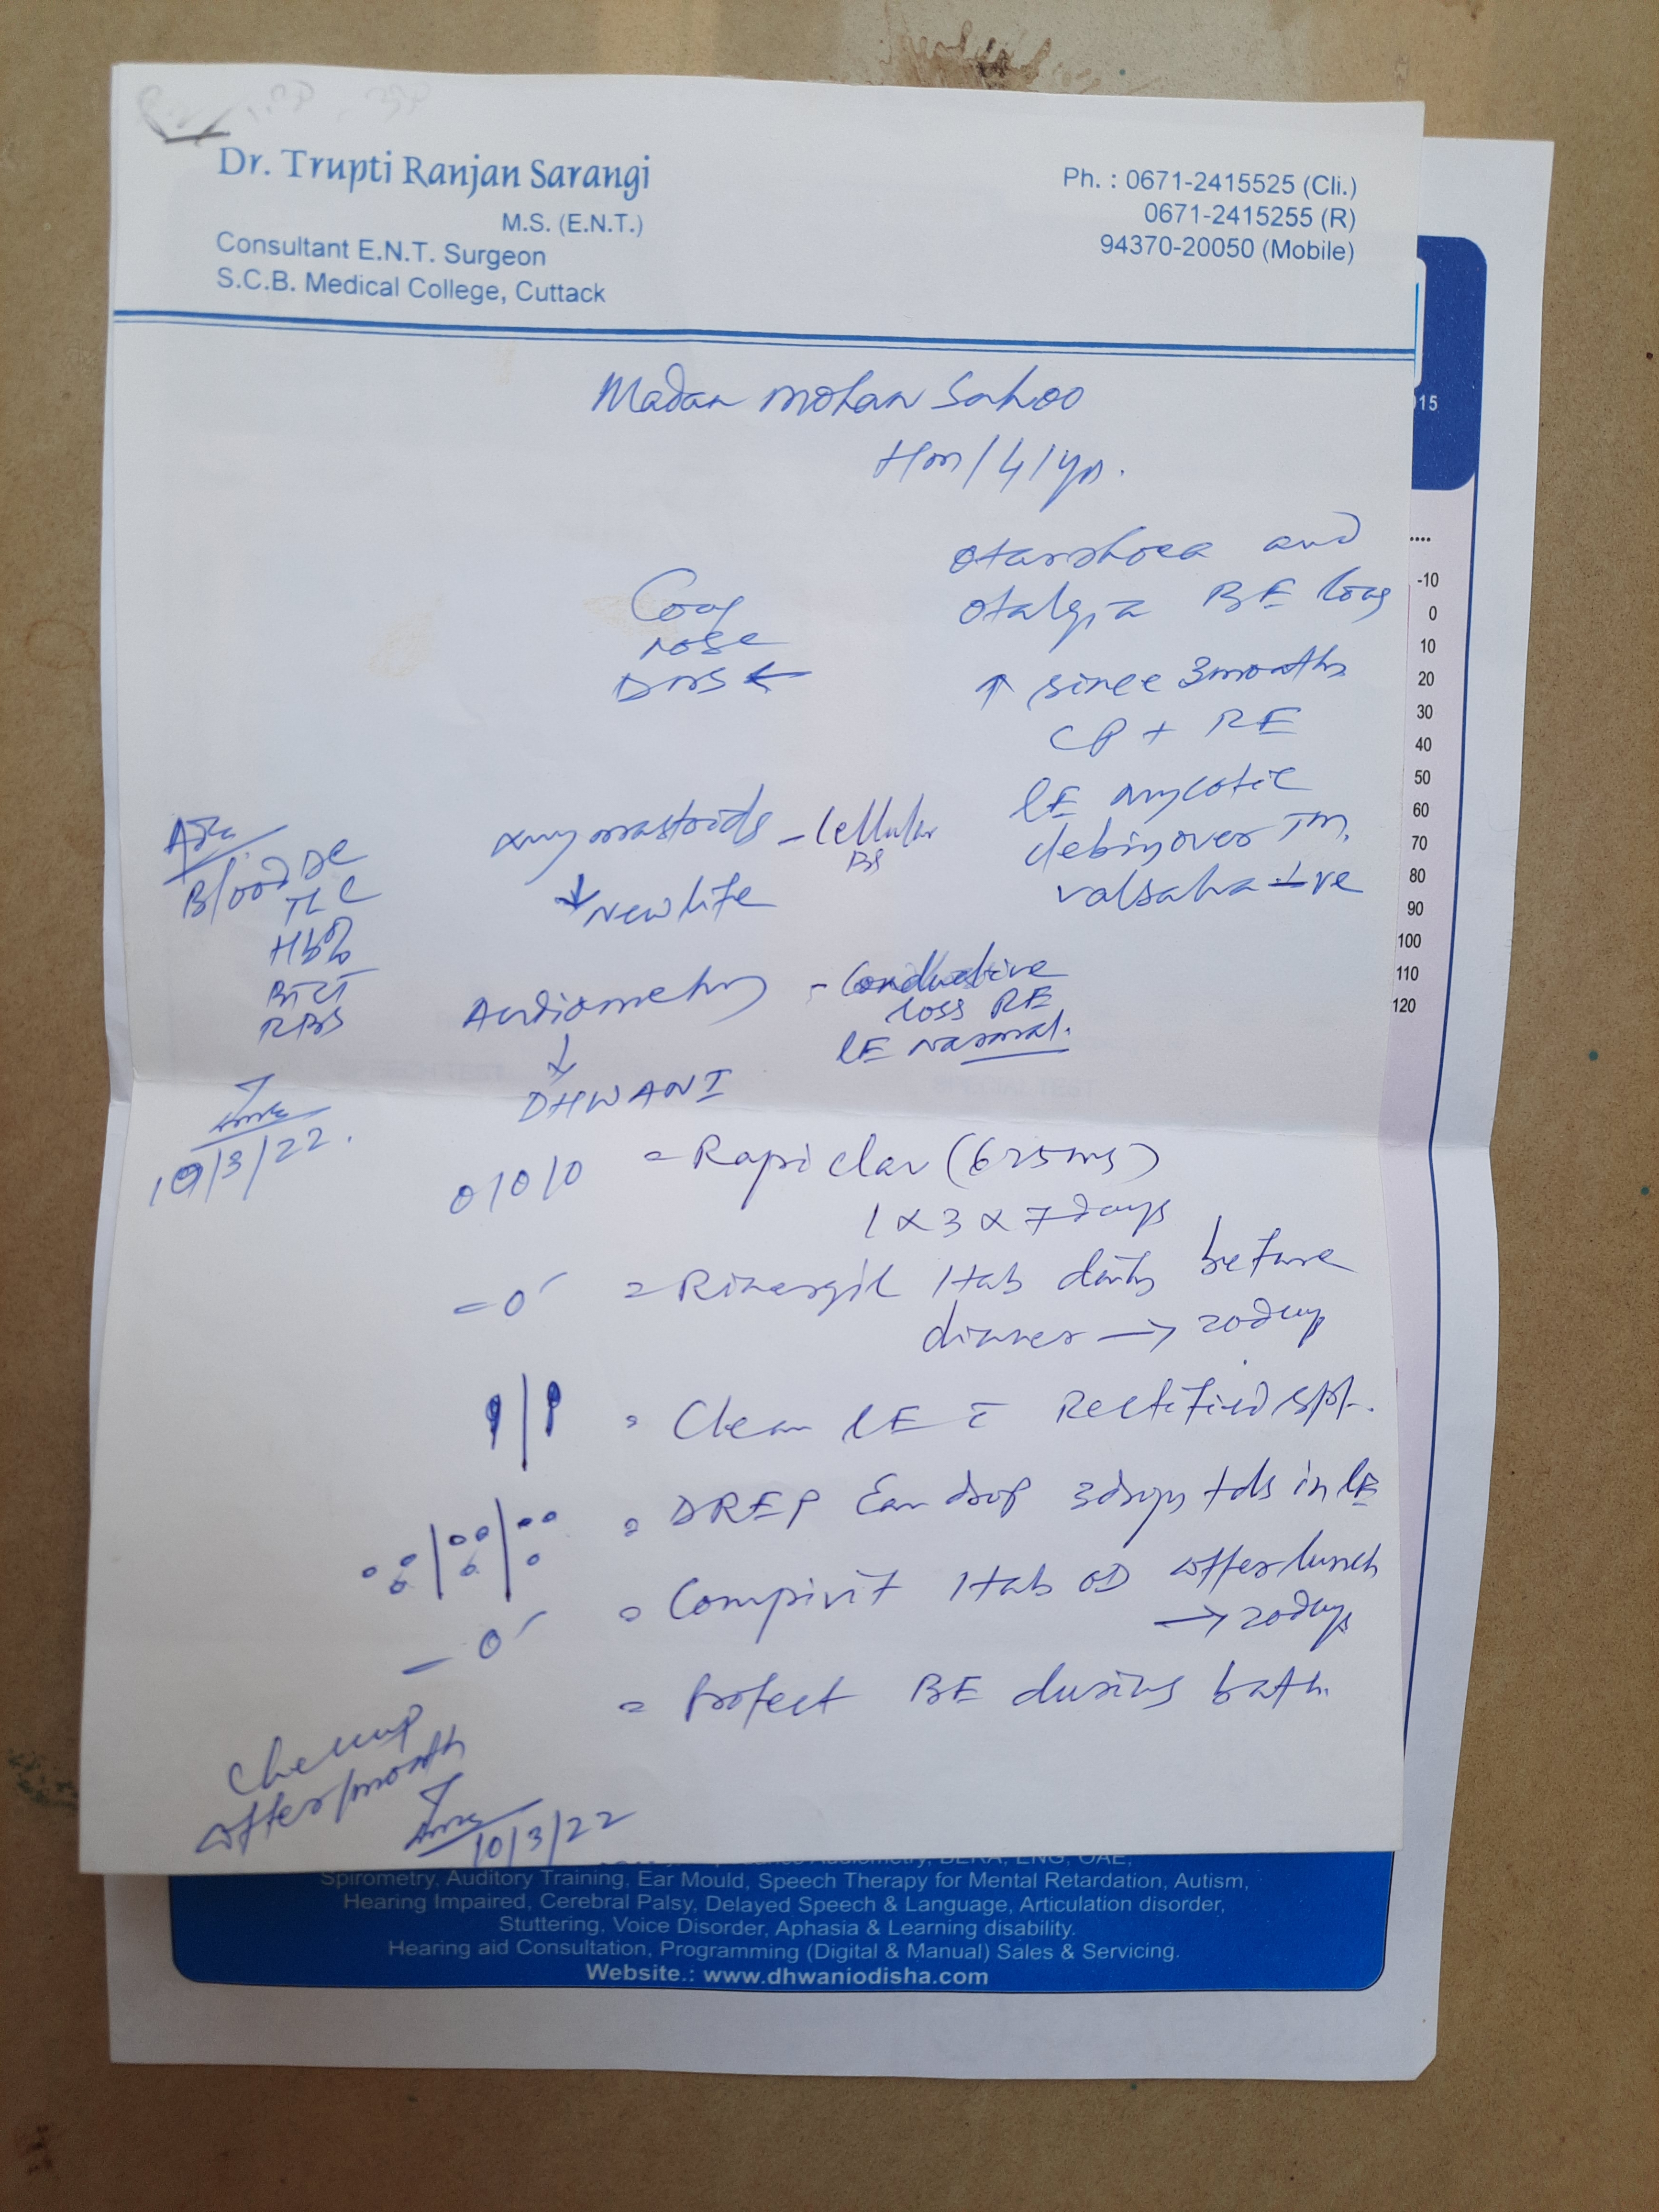 Dr. Trupti Ranjan Sarangi
M.S. (E.N.T.)
Consultant E.N.T. Surgeon
S.C.B. Medical College, Cuttack
Ph. : 0671-2415525 (Cli.)
0671-2415255 (R)
94370-20050 (Mobile)
Madan Mohan Sahoo
Hm/41yrs.
otorrhoea and
otalgia BE long
↑ since 3months
CP + RE
LE mycotic
debris over TM.
valsalva +ve
nose
DNS ←
Xray mastoids - Cellular
BS
↓ New life
Audiometry - Conductive
loss RE
LE normal.
↓
DHWANI
Blood DC
TLC
Hb%
BTCT
RBS
10/3/22.
0/0/0 = Rapiclav (625mg)
1 x 3 x 7days
= 1tab daily before
dinner → 20days
= Clean LE c̄ Rectified spt.
= DREP Ear drop 3drops tds in LE
= 1tab OD after lunch
→ 20days
= Protect BE during bath.
Checkup
after 1month
10/3/22
15
-10
0
10
20
30
40
50
60
70
80
90
100
110
120
BERA, ENG, OAE,
Spirometry, Auditory Training, Ear Mould, Speech Therapy for Mental Retardation, Autism,
Hearing Impaired, Cerebral Palsy, Delayed Speech & Language, Articulation disorder,
Stuttering, Voice Disorder, Aphasia & Learning disability.
Hearing aid Consultation, Programming (Digital & Manual) Sales & Servicing.
Website.: www.dhwaniodisha.com